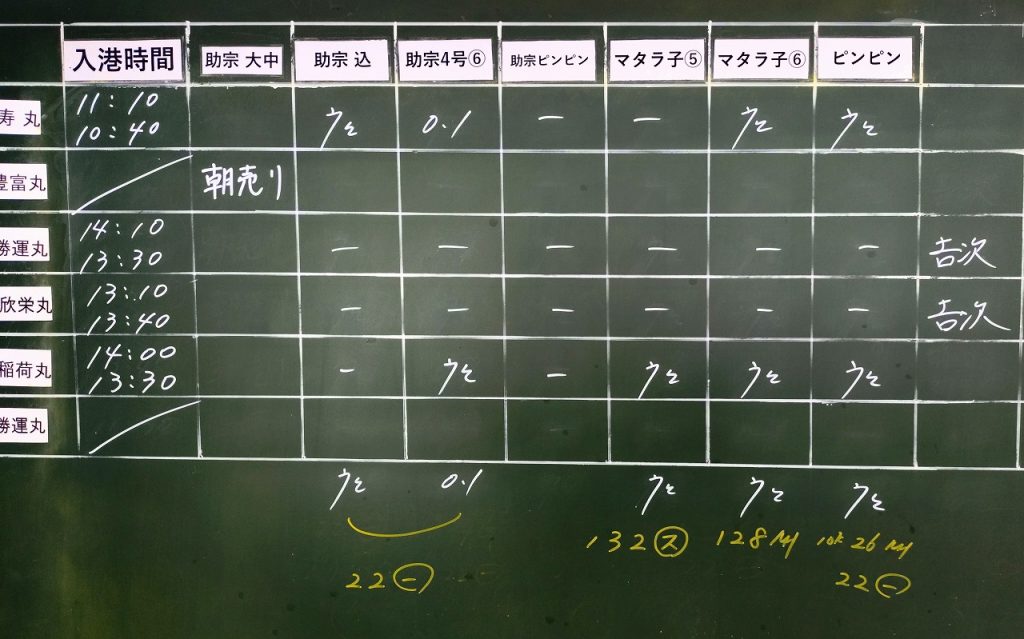 入港時間 助宗 大中 助宗 込 助宗4号⑥ 助宗ピンピン マタラ子⑤ マタラ子⑥ ピンピン
寿 丸 11:10 10:40 ウと 0.1 ー ー ウと ウと
豊富丸 朝売り
勝運丸 14:10 13:30 ー ー ー ー ー ー 吉次
欣栄丸 13:10 13:40 ー ー ー ー ー ー 吉次
稲荷丸 14:00 13:30 ー ウと ー ウと ウと ウと
勝運丸
ウと 0.1 ウと ウと ウと
132ス 128 26
22㊀ 22㊀